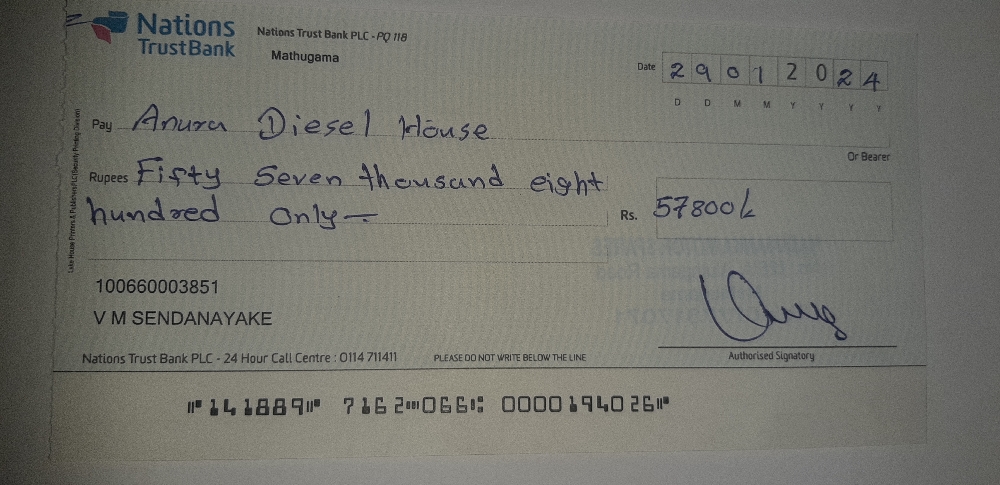 Nations
TrustBank
Nations Trust Bank PLC - PQ 118
Mathugama
Date 29012024
D D M M Y Y Y Y
Pay Anura Diesel House
Or Bearer
Rupees Fifty Seven thousand eight
hundred only—
Rs. 57800/-
100660003851
V M SENDANAYAKE
Nations Trust Bank PLC - 24 Hour Call Centre : 0114 711411 PLEASE DO NOT WRITE BELOW THE LINE
Authorised Signatory
⑈141889⑈ 7162⑉066⑆ 0000194026⑈
Lake House Printers & Publishers PLC (Security Printing Division)